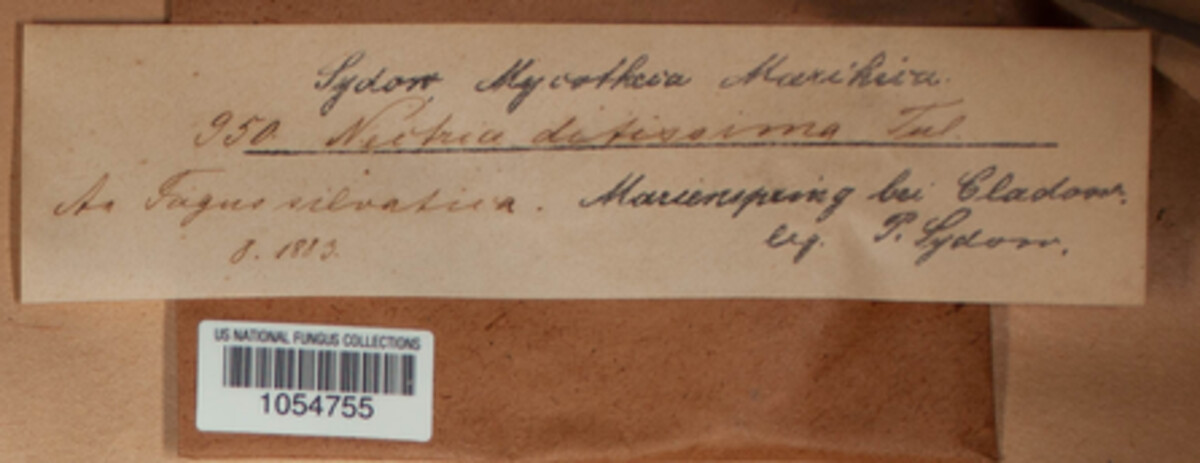 Sydow Mycotheca Marchica.
950. Nectria ditissima Tul.
An Fagus silvatica. Marienspring bei Cladow.
8. 1883. leg. P. Sydow.
US NATIONAL FUNGUS COLLECTIONS
1054755